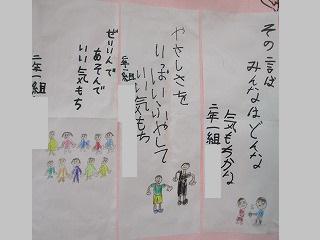 その言ば
みんなはどんな
気もちかな
二年一組
やさしさを
いっぱいふやして
いい気もち
二年一組
ぜんいんで
あそんで
いい気もち
二年一組